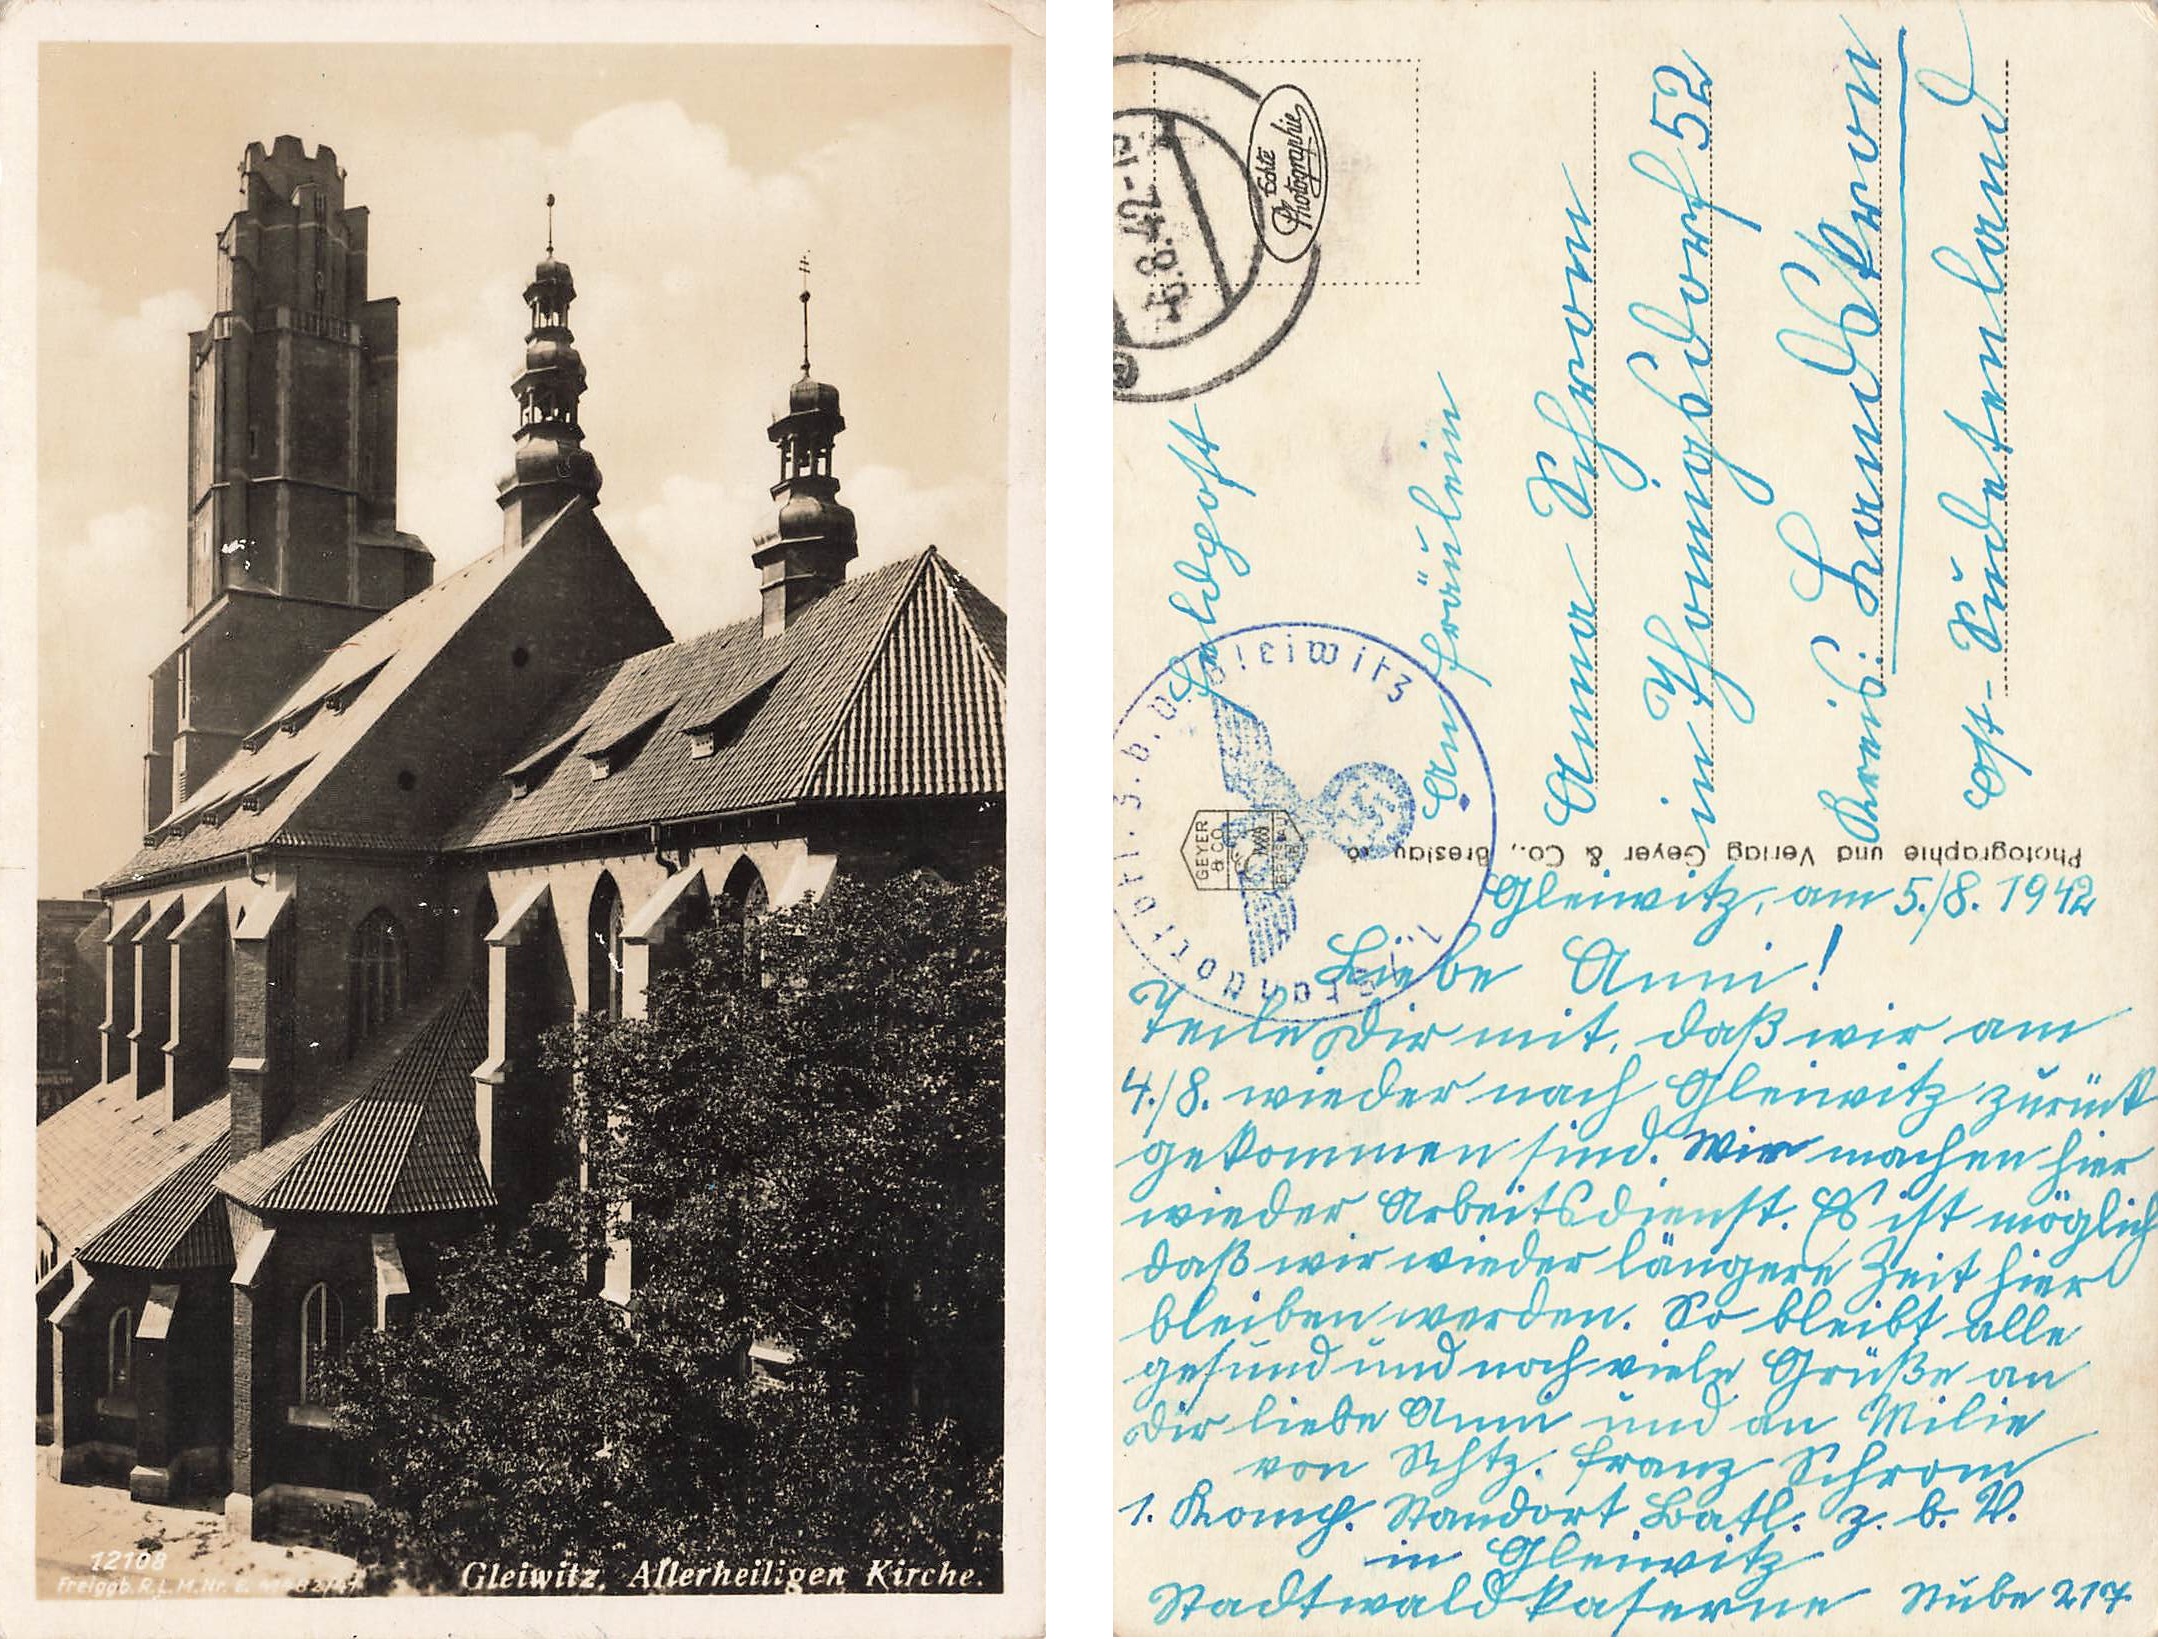 12108
Freiggb. R.L.M. Nr. E.
Gleiwitz, Allerheiligen Kirche.
5.8.42
Echte
Photographie
Feldpost
z.b.V. Gleiwitz
GEYER
& CO
Photographie und Verlag Geyer & Co., Breslau 16
An Fräulein
Anna Schrom
in Thomigsdorf 52
Kreis: Landskron
Ost-Sudetenland
Gleiwitz, am 5./8. 1942
Liebe Anni!
Teile Dir mit, daß wir am
4./8. wieder nach Gleiwitz zurück
gekommen sind. Wir machen hier
wieder Arbeitsdienst. Es ist möglich
daß wir wieder längere Zeit hier
bleiben werden. So bleibt alle
gesund und noch viele Grüße an
Dir liebe Anni und an Milie
von Schtz. Franz Schrom
1. Komp. Standort Batl. z. b. V.
in Gleiwitz
Stadtwaldkaserne Stube 217.